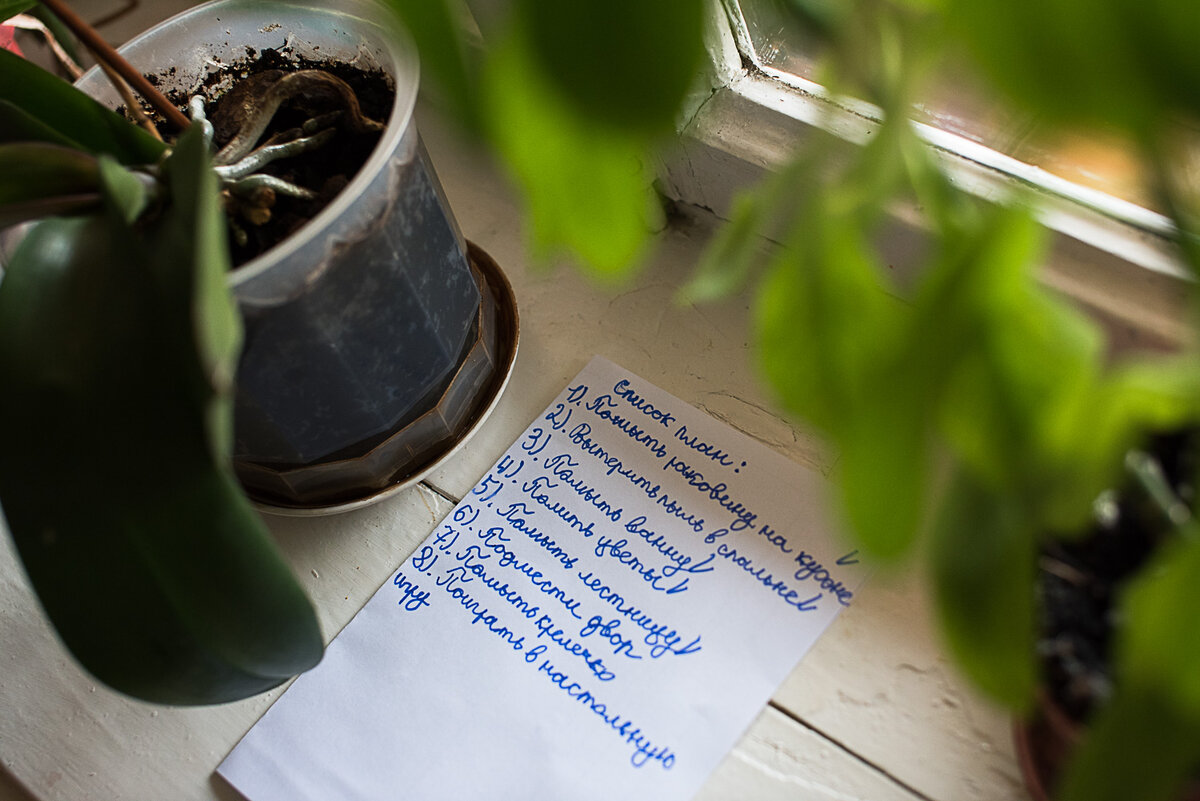 Список план:
1). Помыть раковину на кухне ✓
2). Вытерить пыль в спальне ✓
3) . Помыть ванну ✓
4). Полить цветы ✓
5). Помыть лестницу ✓
6). Подмести двор
7). Помыть крылечко
8). Поиграть в настольную
игру